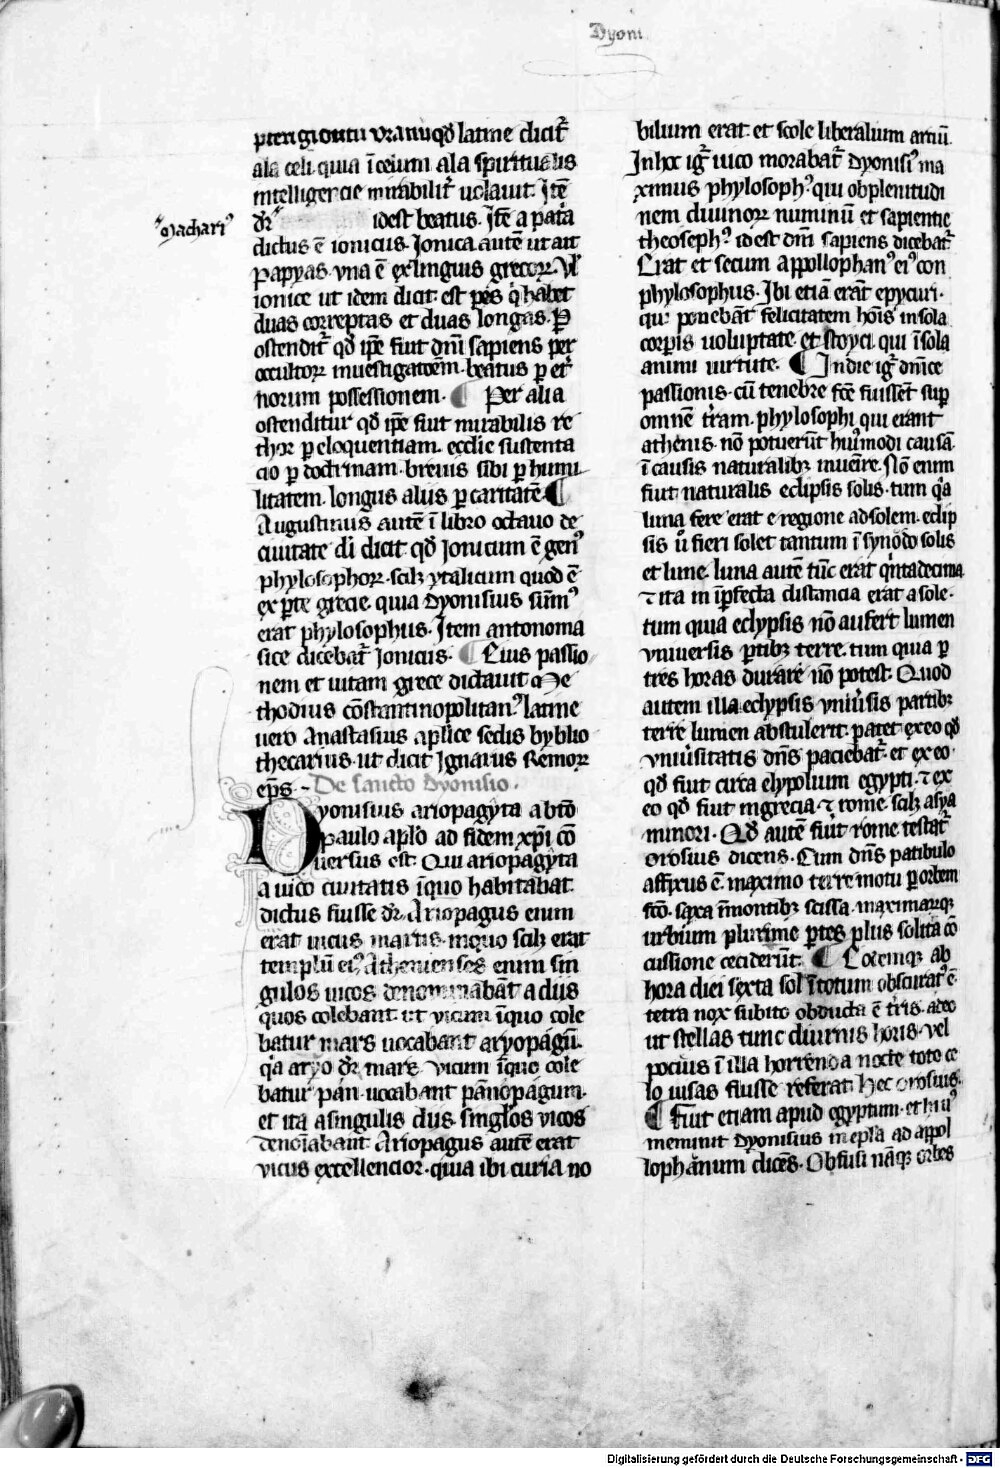 Dyoni
pterigiontu vranu qd̄ latine dicit̄r
ala celi quia ī celum ala spiritualis
intelligencie mirabilit̄ uolauit. Itē
dr̄ idest beatus. Itē a pat̄a
machari⁹
dictus ē ionicus. Ionica autē ut ait
papyas. vna ē ex linguis grecoꝝ. Ul̄
ionice ut idem dicit. est pes q̄ habet
duas correptas et duas longas. P
ostendit̄ qd̄ ipē fuit dm̄ sapiens per
occultoꝝ inuestigatoēm. beatus p et̄
norum possessionem. ¶ Per alia
ostenditur qd̄ ipē fuit mirabilis re
thor p eloquentiam. ecclie sustenta
cio p doctrinam. breuis sibi p humi
litatem. longus aliis p caritatē. ¶
Augustinus autē ī libro octauo de
ciuitate di dicit qd̄ Ionicum ē gen⁹
phylosophoꝝ. scilꝫ ytalicum quod ē
ex pte grecie. quia dyonisius sūm⁹
erat phylosophus. Item antonoma
sice dicebat̄ Ionicus. ¶ Eius passio
nem et uitam grece dictauit Me
thodius cōstantinopolitan⁹. latine
uero Anastasius aplice sedis byblio
thecarius. ut dicit Ignarus Remoꝝ
ep̄s. De sancto dyonisio.
Dyonisius ariopagyta a btō
paulo aplo ad fidem xp̄i cō
uersus est. Qui ariopagyta
a uico ciuitatis īquo habitabat
dictus fuisse dr̄. Ariopagus enim
erat uicus martis. inquo scilꝫ erat
templū ei⁹. Athenienses enim sin
gulos uicos denominabāt a diis
quos colebant. ut vicum īquo cole
batur mars uocabant aryopagū.
q̄a aryo dr̄ mars. vicum īquo cole
batur pan. uocabant panopagum.
et ita a singulis diis singlos vicos
denoīabant. Ariopagus autē erat
vicus excellencior. quia ibi curia no
bilium erat et scole liberalium artiū.
In hoc iḡ uico morabat̄ dyonisi⁹ ma
ximus phylosoph⁹. qui ob plenitudi
nem diuinoꝝ numinū et sapientie
theosoph⁹. id est dm̄ sapiens dicebat̄.
Erat et secum appollophan⁹ ei⁹ con
phylosophus. Ibi etiā erāt epycuri.
qui ponebāt felicitatem hoīs in sola
corpis uoluptate. et stoyci qui ī sola
animi uirtute. ¶ In die iḡ dnīce
passionis. cū tenebre fcē fuissēt sup
omnē t̄ram. phylosophi qui erant
athenis. nō potuerūt hui⁹modi causā
ī causis naturalibꝫ inuēire. Nō enim
fuit naturalis eclipsis solis. tum q̄a
luna fere erat e regione ad solem. eclip
sis ū fieri solet tantum ī synodo solis
et lune. luna autē tūc erat q̄ntadecima
⁊ ita in īpfecta distancia erat a sole.
tum quia eclypsis nō aufert lumen
vniuersis ptibꝫ terre. tum quia p
tres horas durare nō potest. Quod
autem illa eclypsis vniūsis partibꝫ
terre lumen abstulerit. patet ex eo qd̄
vniūsitatis dn̄s paciebat̄. et ex eo
qd̄ fuit circa elypolium egypti. ⁊ ex
eo qd̄ fuit in grecia. ⁊ rome. scilꝫ asya
minori. Qd̄ autē fuit rome testat̄
Orosius dicens. Cum dn̄s patibulo
affixus ē. maximo terre motu p orbem
fcō. saxa in montibꝫ scissa. maximarumqꝫ
urbium plurime ptes plus solita cō
cussione ceciderūt. ¶ Eodemqꝫ ab
hora diei sexta sol ī totum obscurat⁹ ē
tetra nox subito obducta ē t̄ris. adeo
ut stellas tunc diurnis horis. vel
pocius ī illa horrenda nocte toto ce
lo uisas fuisse referat. Hec orosius.
¶ Fuit etiam apud egyptum. et hui⁹
meminit dyonisius in epla ad appol
lophanum dicēs. Obfusi nāqꝫ orbes
Digitalisierung gefördert durch die Deutsche Forschungsgemeinschaft - DFG